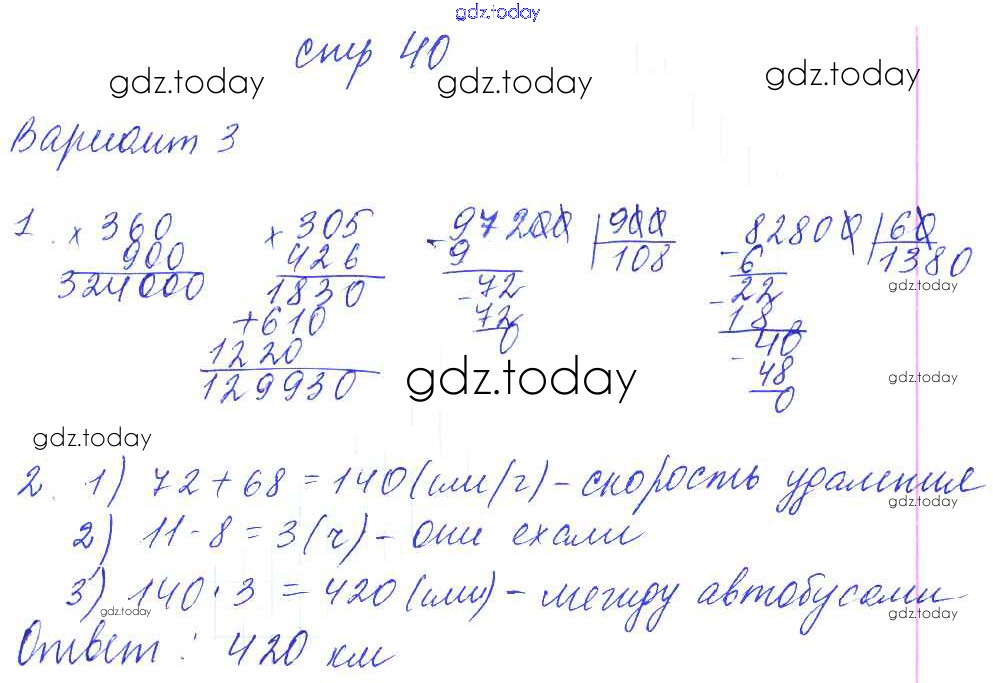 gdz.today
стр 40
gdz.today gdz.today gdz.today
Вариант 3
1. × 360 × 305 - 97200 | 900 - 82800 | 60
900 426 9 108 6 1380
324000 1830 - 72 - 22 gdz.today
+ 610 72 18
1220 0 - 40
129930 gdz.today 48 gdz.today
0
gdz.today
2. 1) 72 + 68 = 140 (км/ч) - скорость удаления
gdz.today
2) 11 - 8 = 3 (ч) - они ехали
3) 140 · 3 = 420 (км) - между автобусами
gdz.today gdz.today
Ответ: 420 км